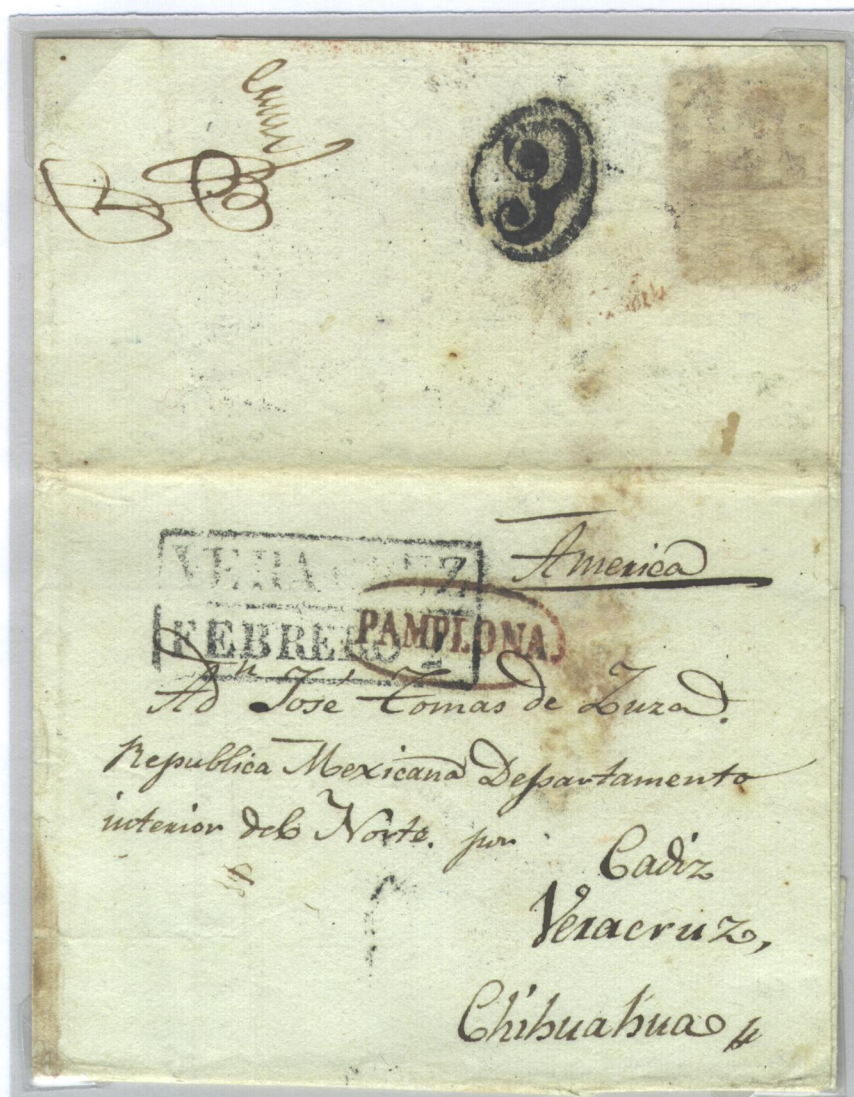 3
America
VERA CRUZ
FEBRERO
PAMPLONA
A Dn José Tomas de Zuza.
Republica Mexicana Departamento
interior del Norte. por
Cadiz
Veracruz,
Chihuahua